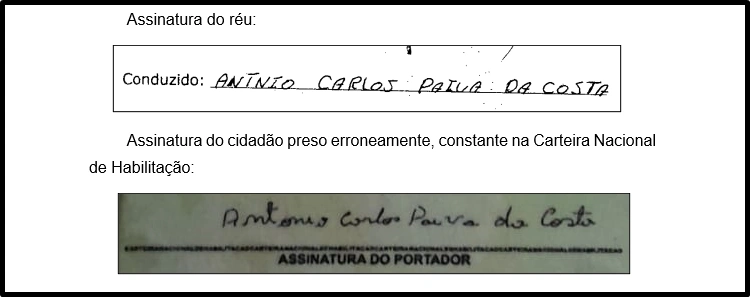 Assinatura do réu:
Conduzido: ANTÍNIO CARLOS PAIVA DA COSTA
Assinatura do cidadão preso erroneamente, constante na Carteira Nacional
de Habilitação:
Antonio Carlos Paiva da Costa
ASSINATURA DO PORTADOR